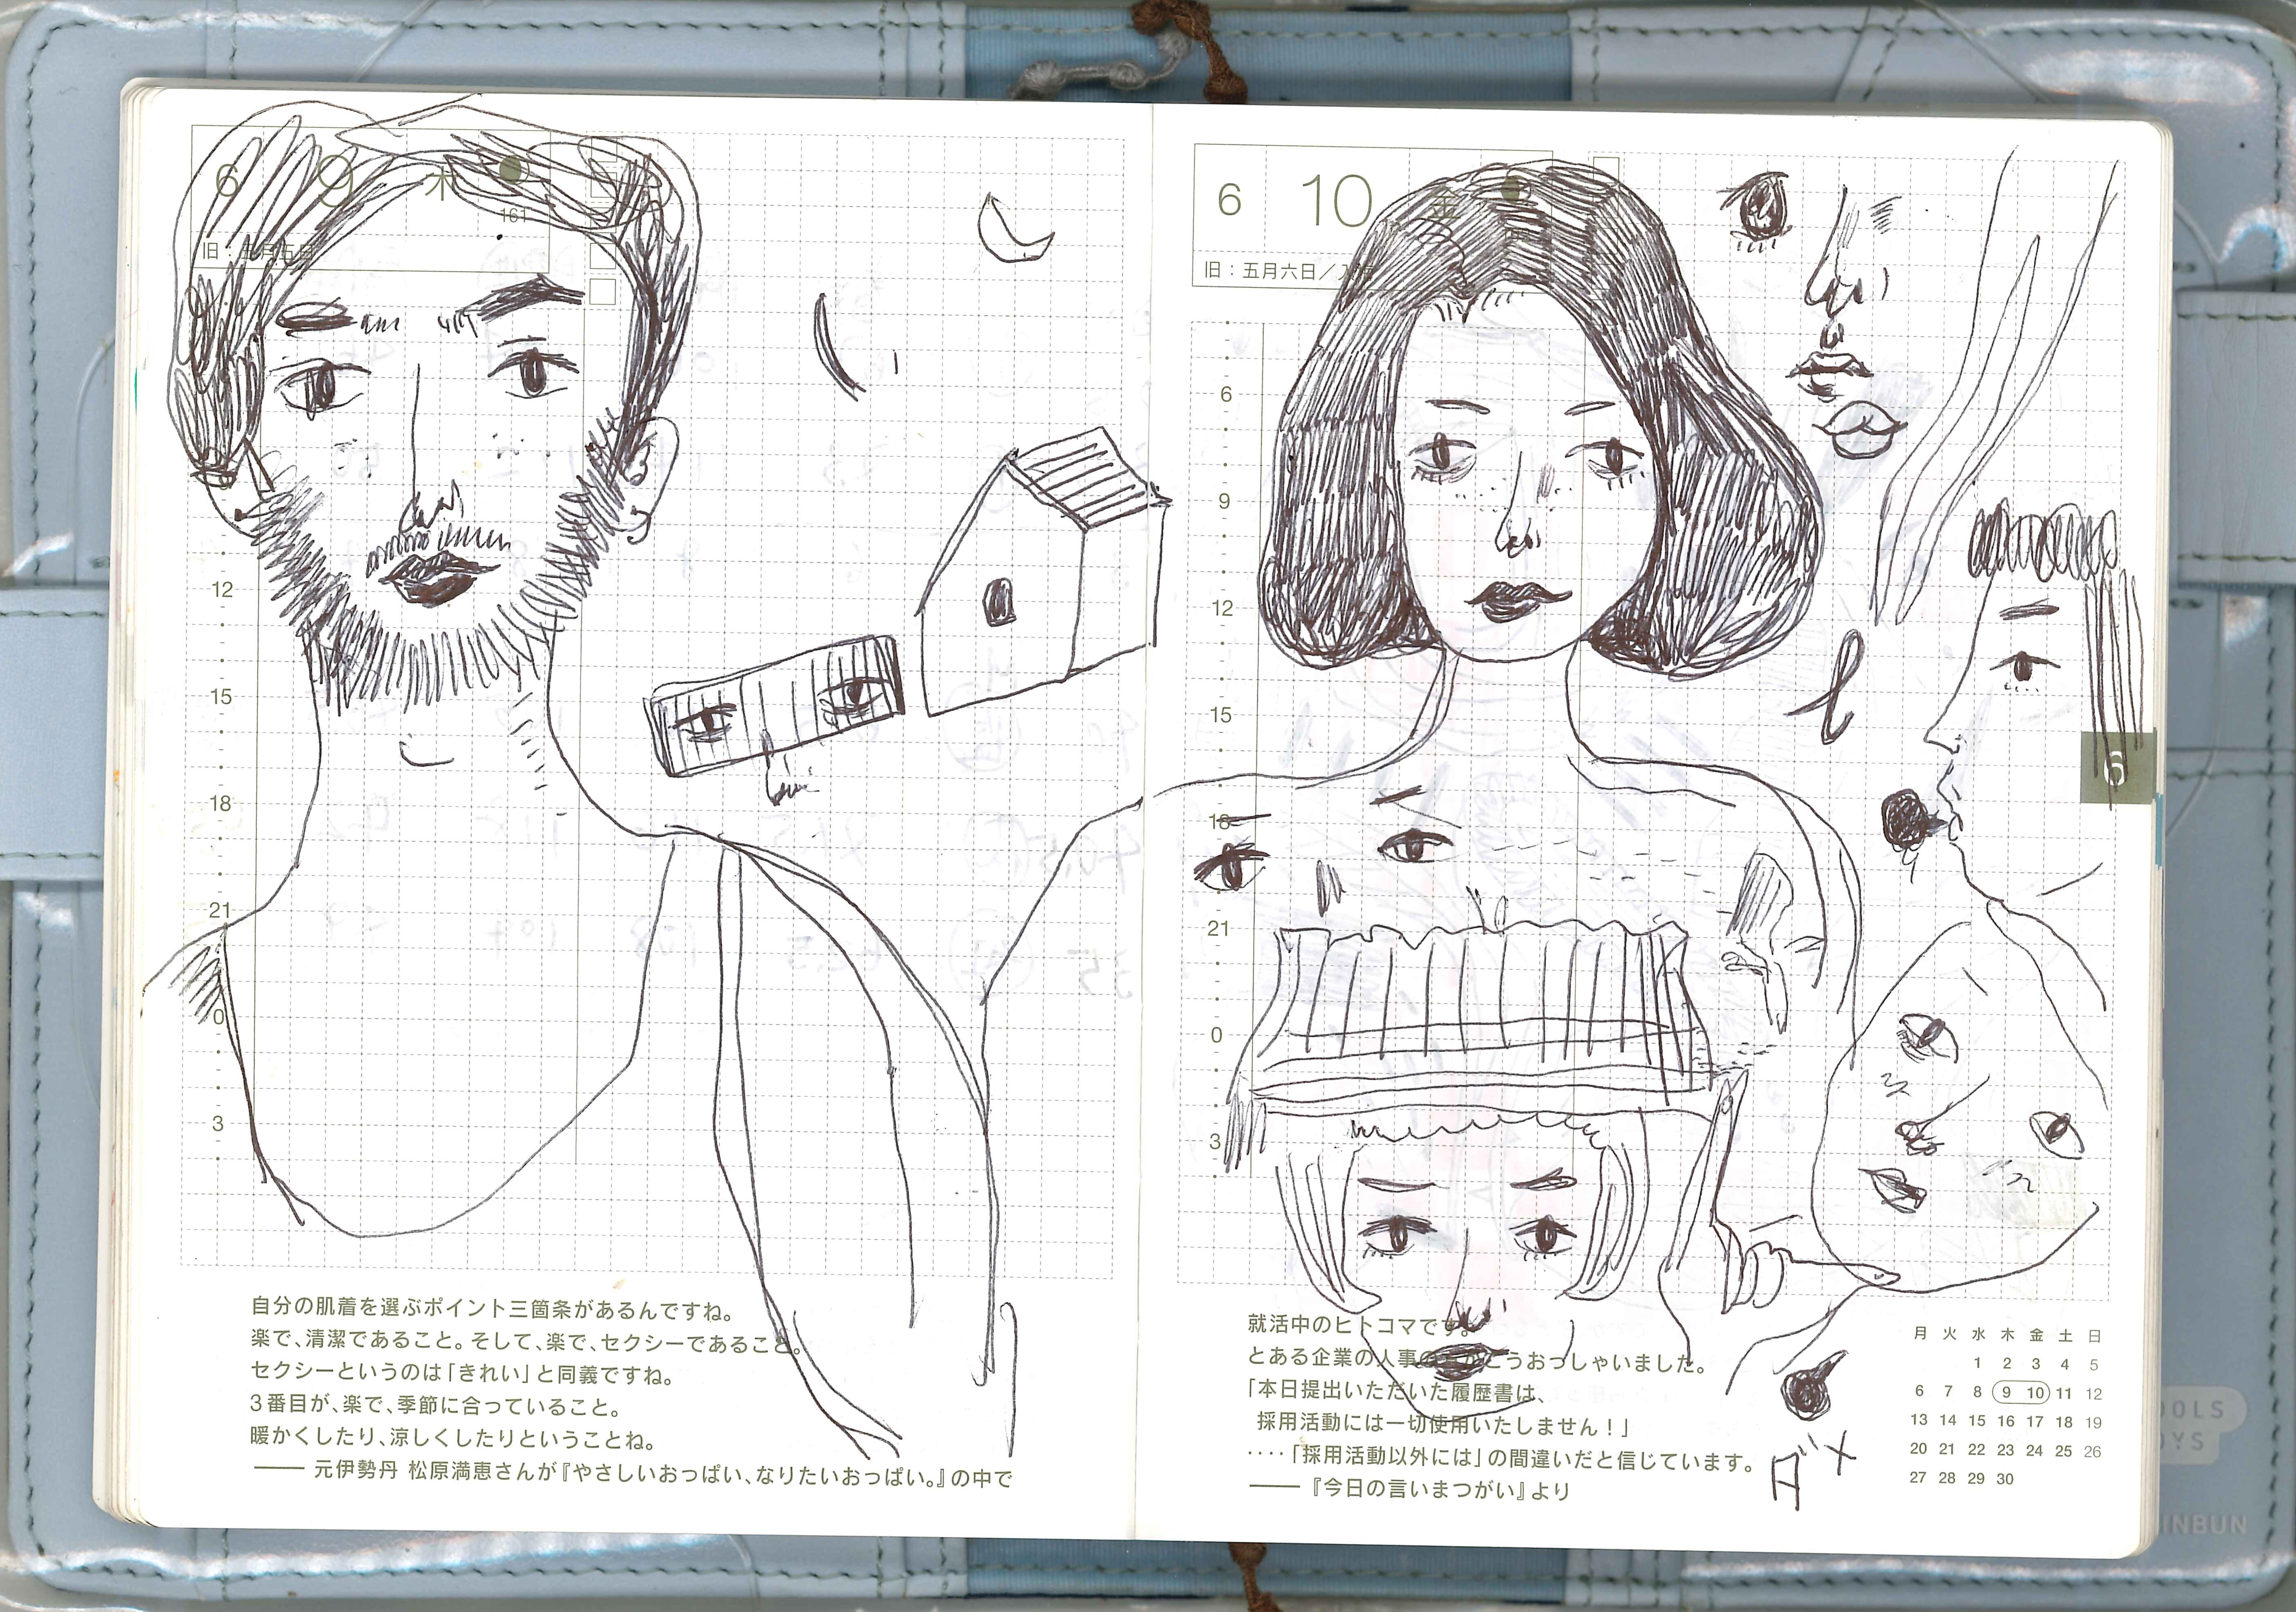 6 9 木
161
旧：五月五日
12
15
18
21
0
3
自分の肌着を選ぶポイント三箇条があるんですね。
楽で、清潔であること。そして、楽で、セクシーであること。
セクシーというのは「きれい」と同義ですね。
3番目が、楽で、季節に合っていること。
暖かくしたり、涼しくしたりということね。
―― 元伊勢丹 松原満恵さんが『やさしいおっぱい、なりたいおっぱい。』の中で
6 10 金
旧：五月六日／入梅
6
9
12
15
18
21
0
3
6
就活中のヒトコマです。
とある企業の人事の方がこうおっしゃいました。
「本日提出いただいた履歴書は、
採用活動には一切使用いたしません！」
‥‥「採用活動以外には」の間違いだと信じています。
―― 『今日の言いまつがい』より
ダメ
月 火 水 木 金 土 日
1 2 3 4 5
6 7 8 9 10 11 12
13 14 15 16 17 18 19
20 21 22 23 24 25 26
27 28 29 30
OOLS
OYS
INBUN